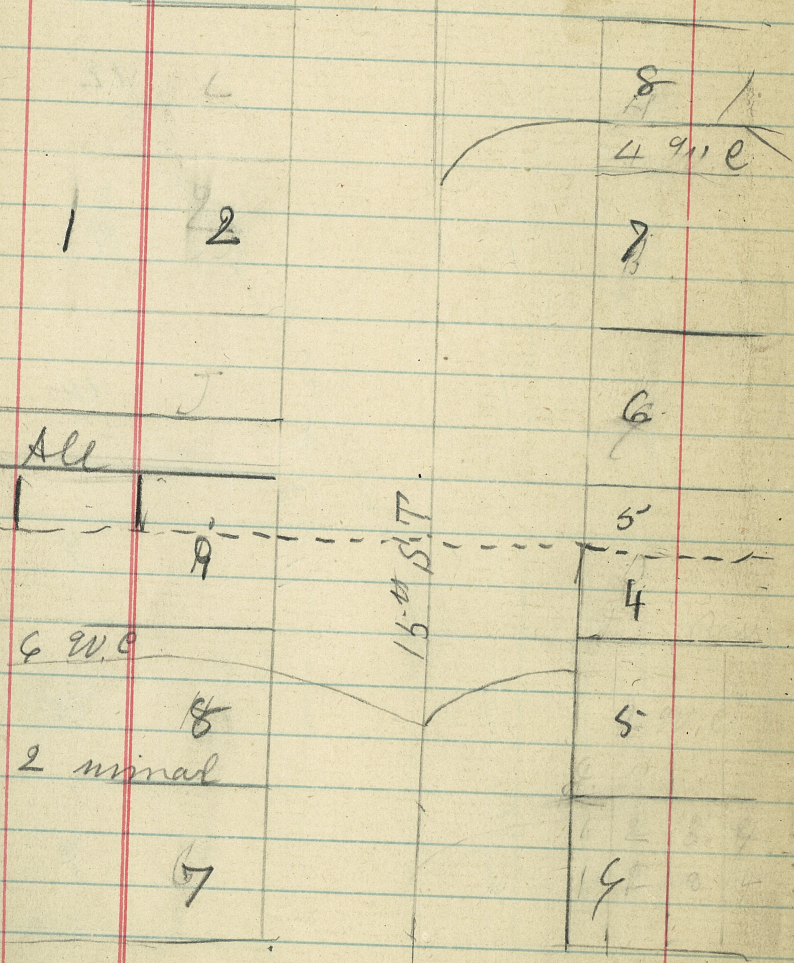 8
4 W C
1 2
7
6
All
5
9
15TH ST
4
6 W.C
8
5
2 urinal
7
4